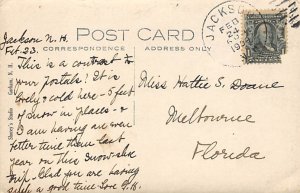 Jackson N.H.
Feb. 23.
POST CARD
CORRESPONDENCE
ADDRESS ONLY
JACKSON
FEB
24
This is a contrast to
your postals! It is
lovely & cold here - 5 feet
of snow in places - &
I am having an even
better time than last
year on this snow-shoe
trip. Glad you are having
such a good time too.
Miss Hattie S. Doane
Melbourne
Florida
Shorey's Studio
Jackson, N. H.